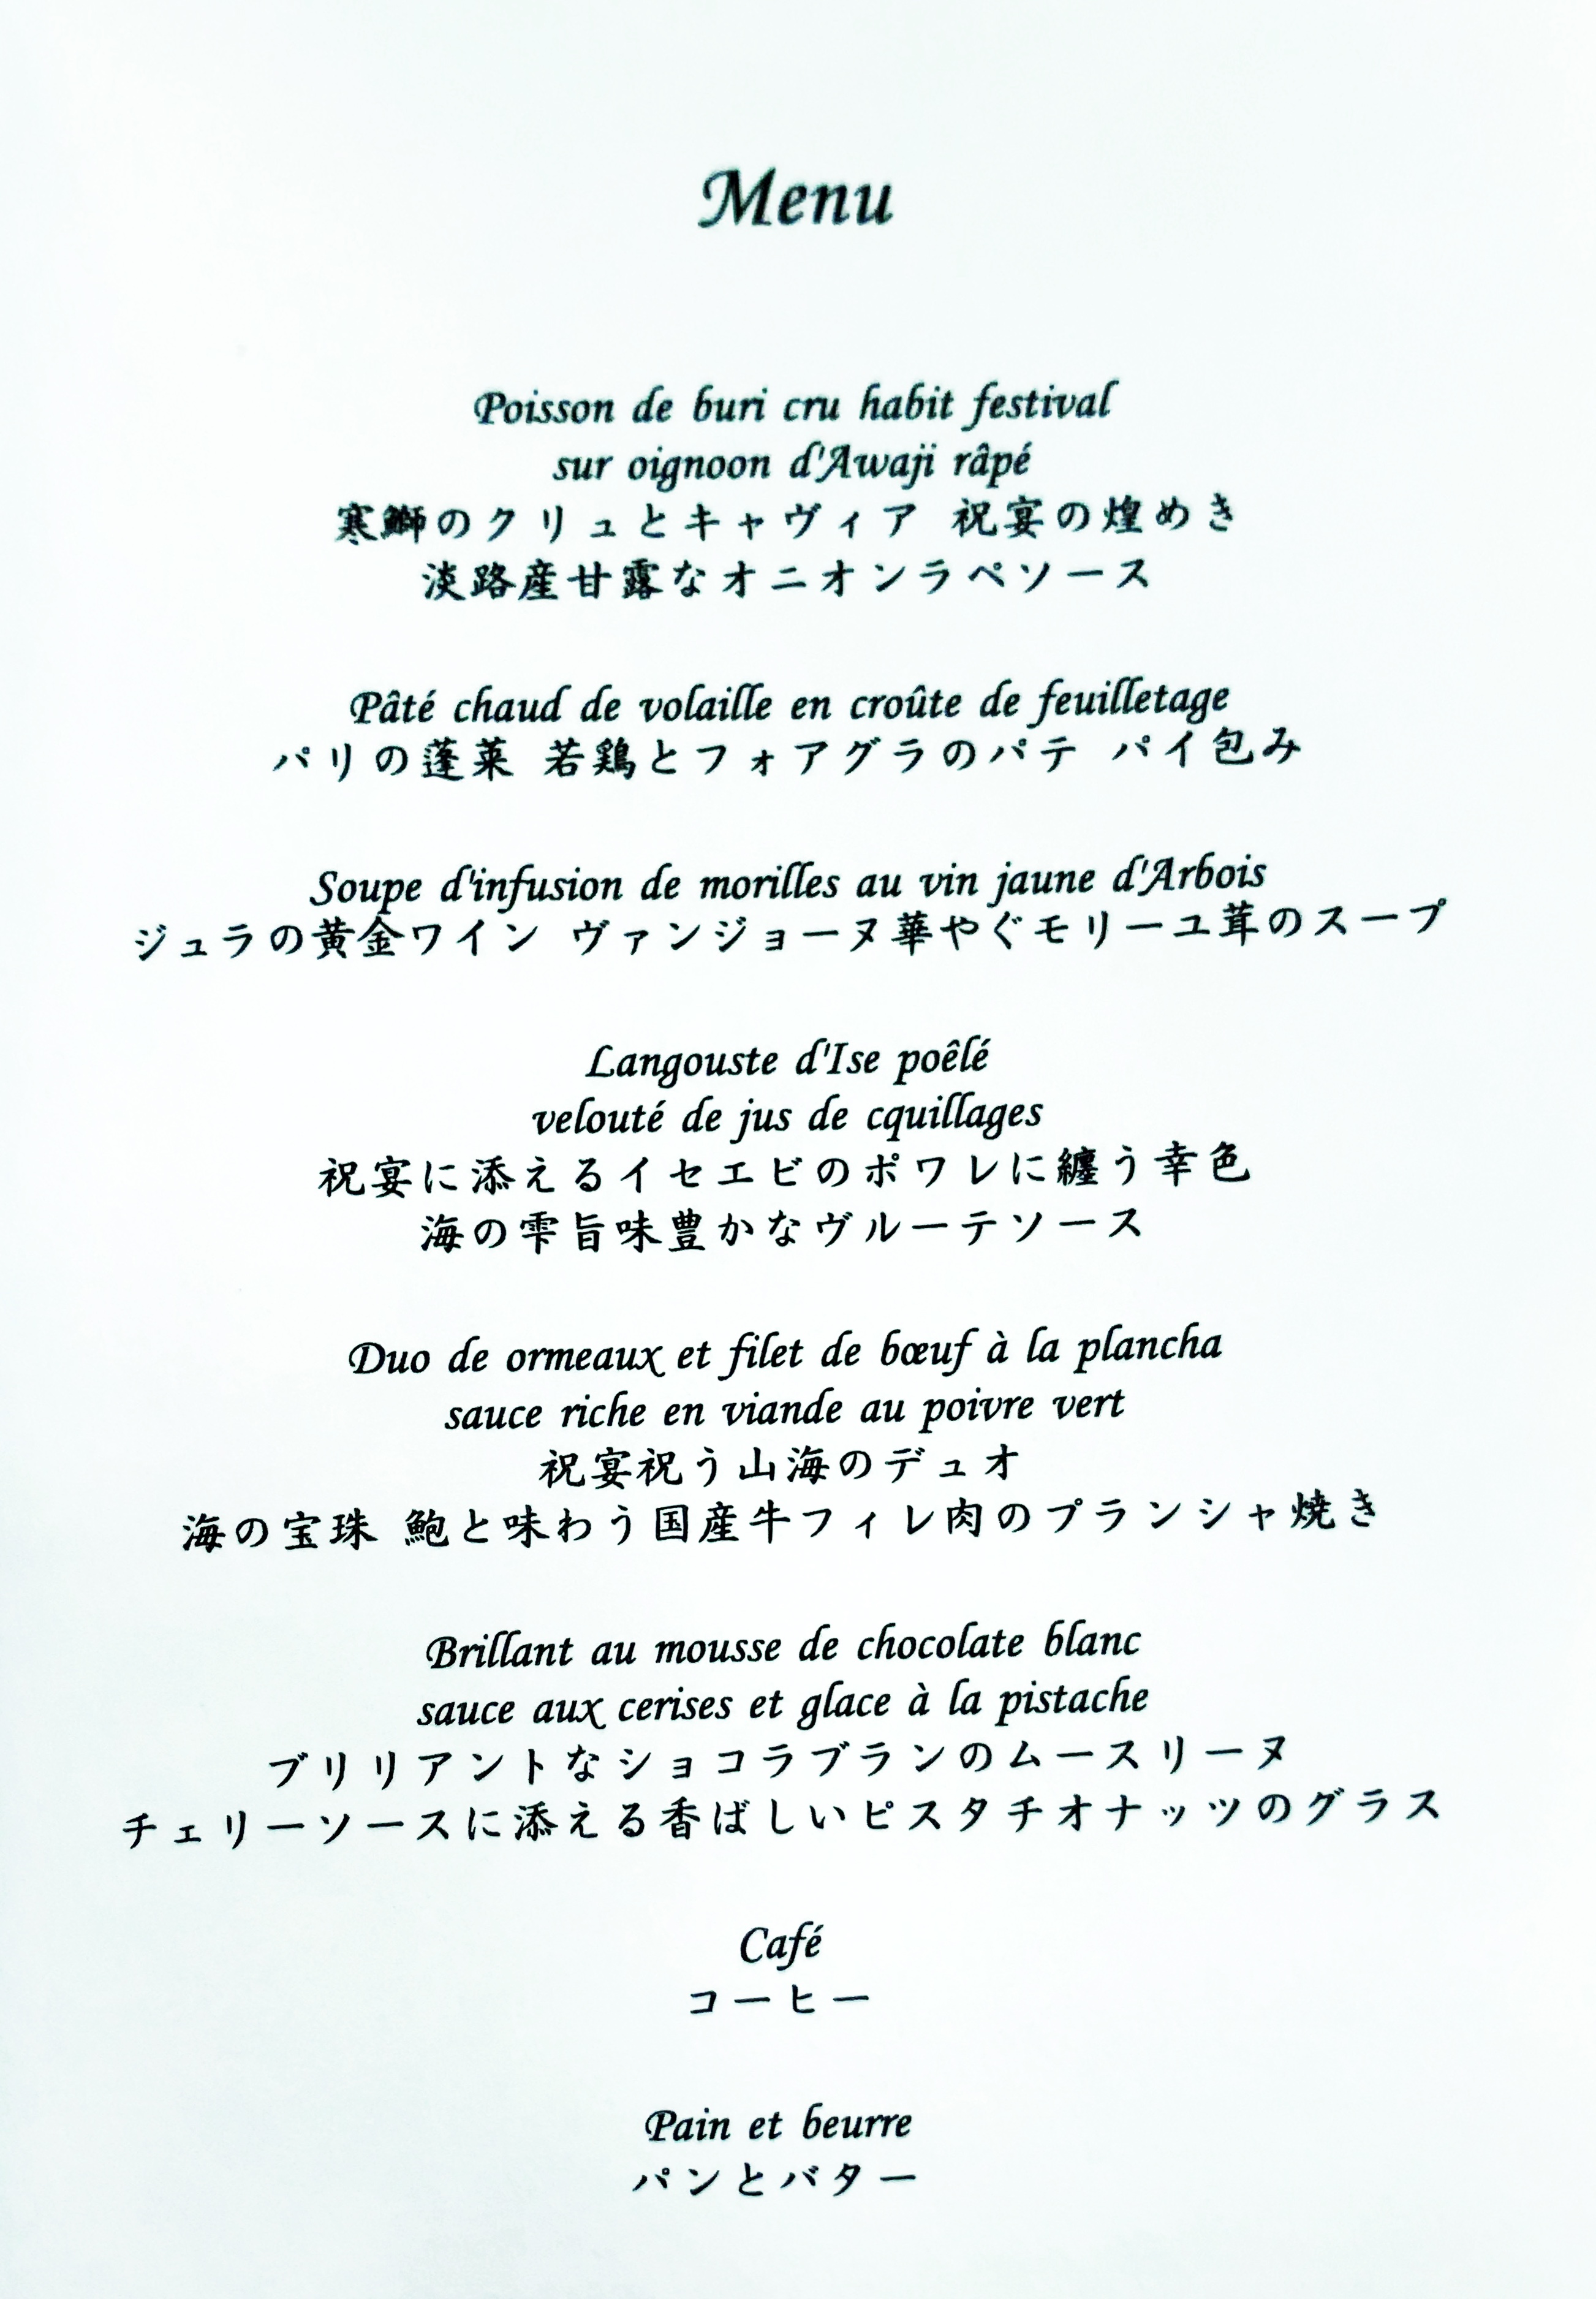 Menu
Poisson de buri cru habit festival
sur oignoon d'Awaji râpé
寒鰤のクリュとキャヴィア 祝宴の煌めき
淡路産甘露なオニオンラペソース
Pâté chaud de volaille en croûte de feuilletage
パリの蓬莱 若鶏とフォアグラのパテ パイ包み
Soupe d'infusion de morilles au vin jaune d'Arbois
ジュラの黄金ワイン ヴァンジョーヌ華やぐモリーユ茸のスープ
Langouste d'Ise poêlé
velouté de jus de cquillages
祝宴に添えるイセエビのポワレに纏う幸色
海の雫旨味豊かなヴルーテソース
Duo de ormeaux et filet de bœuf à la plancha
sauce riche en viande au poivre vert
祝宴祝う山海のデュオ
海の宝珠 鮑と味わう国産牛フィレ肉のプランシャ焼き
Brillant au mousse de chocolate blanc
sauce aux cerises et glace à la pistache
ブリリアントなショコラブランのムースリーヌ
チェリーソースに添える香ばしいピスタチオナッツのグラス
Café
コーヒー
Pain et beurre
パンとバター